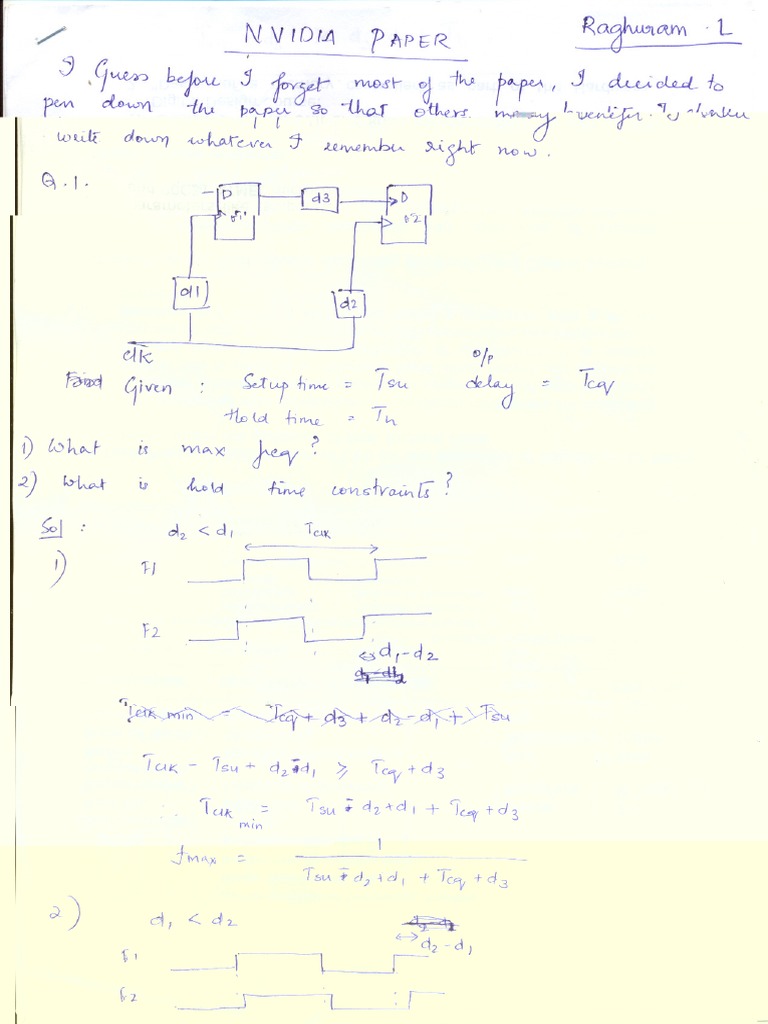 NVIDIA PAPER
Raghuram . L
I Guess before I forget most of the paper, I decided to
pen down the paper so that others may
write down whatever I remember right now.
Q.1.
D
d3
D
F1
F2
d1
d2
clk
Given : Setup time = Tsu o/p delay = Tcq
Hold time = Th
1) What is max freq?
2) What is hold time constraints?
Sol :
1)
d2 < d1
Tclk
F1
F2
d1-d2
Tclk min = Tcq + d3 + d2 - d1 + Tsu
Tclk - Tsu + d2 - d1 ≥ Tcq + d3
∴ Tclk min = Tsu - d2 + d1 + Tcq + d3
fmax = 1
Tsu - d2 + d1 + Tcq + d3
2)
d1 < d2
d2 - d1
F1
F2